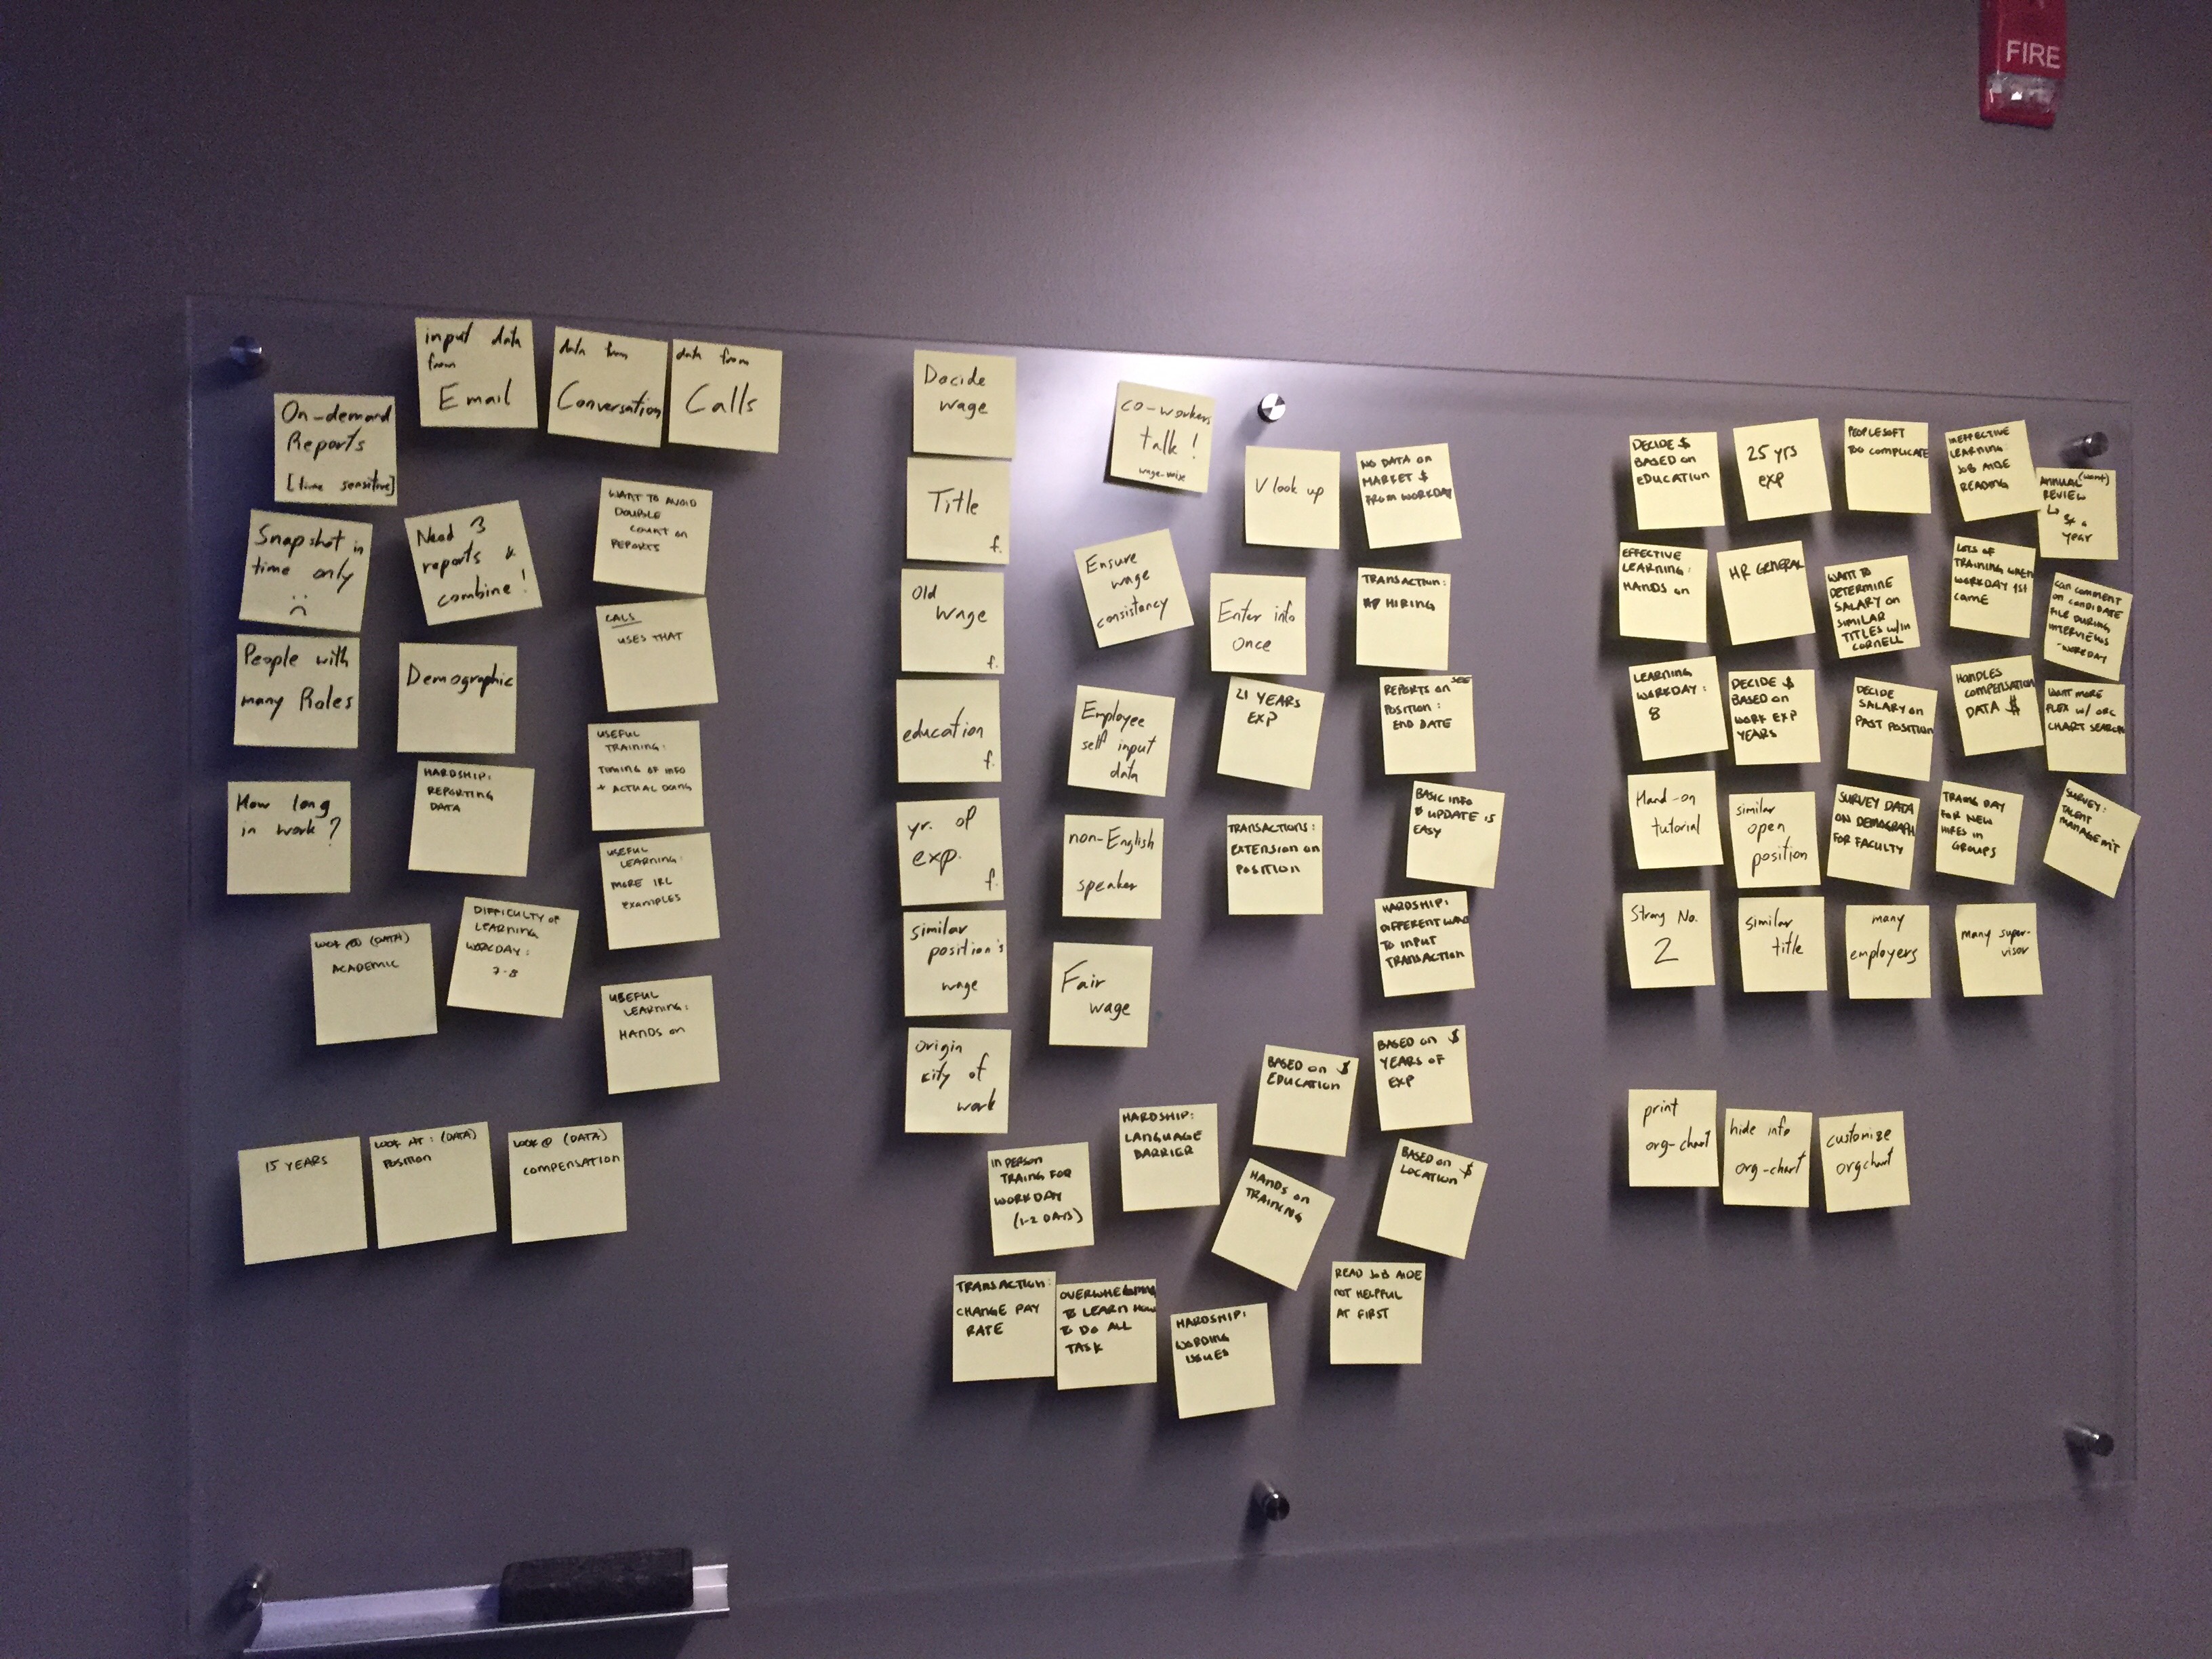 FIRE
input data
from
Email
data from
Conversation
data from
Calls
On-demand
Reports
[time sensitive]
Snapshot in
time only
Need 3
reports &
combine!
WANT TO AVOID
DOUBLE
COUNT ON
REPORTS
People with
many Roles
Demographic
CALS
USES THAT
How long
in work?
HARDSHIP:
REPORTING
DATA
USEFUL
TRAINING:
TIMING OF INFO
+ ACTUAL DOING
USEFUL
LEARNING:
MORE IRL
EXAMPLES
LOOK @ (DATA)
ACADEMIC
DIFFICULTY OF
LEARNING
WORKDAY:
7-8
USEFUL
LEARNING:
HANDS ON
15 YEARS
LOOK AT: (DATA)
POSITION
LOOK @ (DATA)
COMPENSATION
Decide
wage
Title
f.
Old
wage
f.
education
f.
yr. of
exp.
f.
similar
position's
wage
origin
city of
work
co-workers
talk!
wage-wise
V look up
NO DATA ON
MARKET $
FROM WORKDAY
Ensure
wage
consistency
Enter info
once
TRANSACTION:
HIRING
Employee
self input
data
21 YEARS
EXP
SEE
REPORTS ON
POSITION:
END DATE
non-English
speaker
TRANSACTIONS:
EXTENSION ON
POSITION
BASIC INFO
UPDATE IS
EASY
Fair
wage
HARDSHIP:
DIFFERENT WAYS
TO INPUT
TRANSACTION
BASED ON $
EDUCATION
BASED ON $
YEARS OF
EXP
IN PERSON
TRAING FOR
WORKDAY
(1-2 DAYS)
HARDSHIP:
LANGUAGE
BARRIER
HANDS ON
TRAINING
BASED ON $
LOCATION
TRANSACTION:
CHANGE PAY
RATE
TO LEARN HOW
TO DO ALL
TASK
HARDSHIP:
WORDING
ISSUES
READ JOB AIDE
NOT HELPFUL
AT FIRST
DECIDE $
BASED ON
EDUCATION
25 yrs
exp
PEOPLESOFT
TOO COMPLICATE
INEFFECTIVE
LEARNING:
JOB AIDE
READING
ANNUAL (WANT)
REVIEW
year
EFFECTIVE
LEARNING:
HANDS ON
HR GENERAL
WANT TO
DETERMINE
SALARY ON
SIMILAR
TITLES W/IN
CORNELL
LOTS OF
TRAINING WHEN
WORKDAY 1ST
CAME
CAN COMMENT
ON CANDIDATE
FILE DURING
INTERVIEWS
-WORKDAY
LEARNING
WORKDAY:
8
DECIDE $
BASED ON
WORK EXP
YEARS
DECIDE
SALARY ON
PAST POSITION
HANDLES
COMPENSATION
DATA $
WANT MORE
FLEX W/ ORG
CHART SEARCH
Hand-on
tutorial
similar
open
position
SURVEY DATA
ON DEMOGRAPH
FOR FACULTY
TRAING DAY
FOR NEW
HIRES IN
GROUPS
SURVEY:
TALENT
MANAGEM'T
Strong No.
2
similar
title
many
employers
many super-
visor
print
org-chart
hide info
org-chart
customize
orgchart